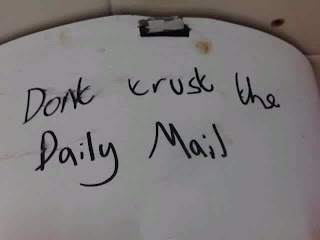 Dont trust the
Daily Mail